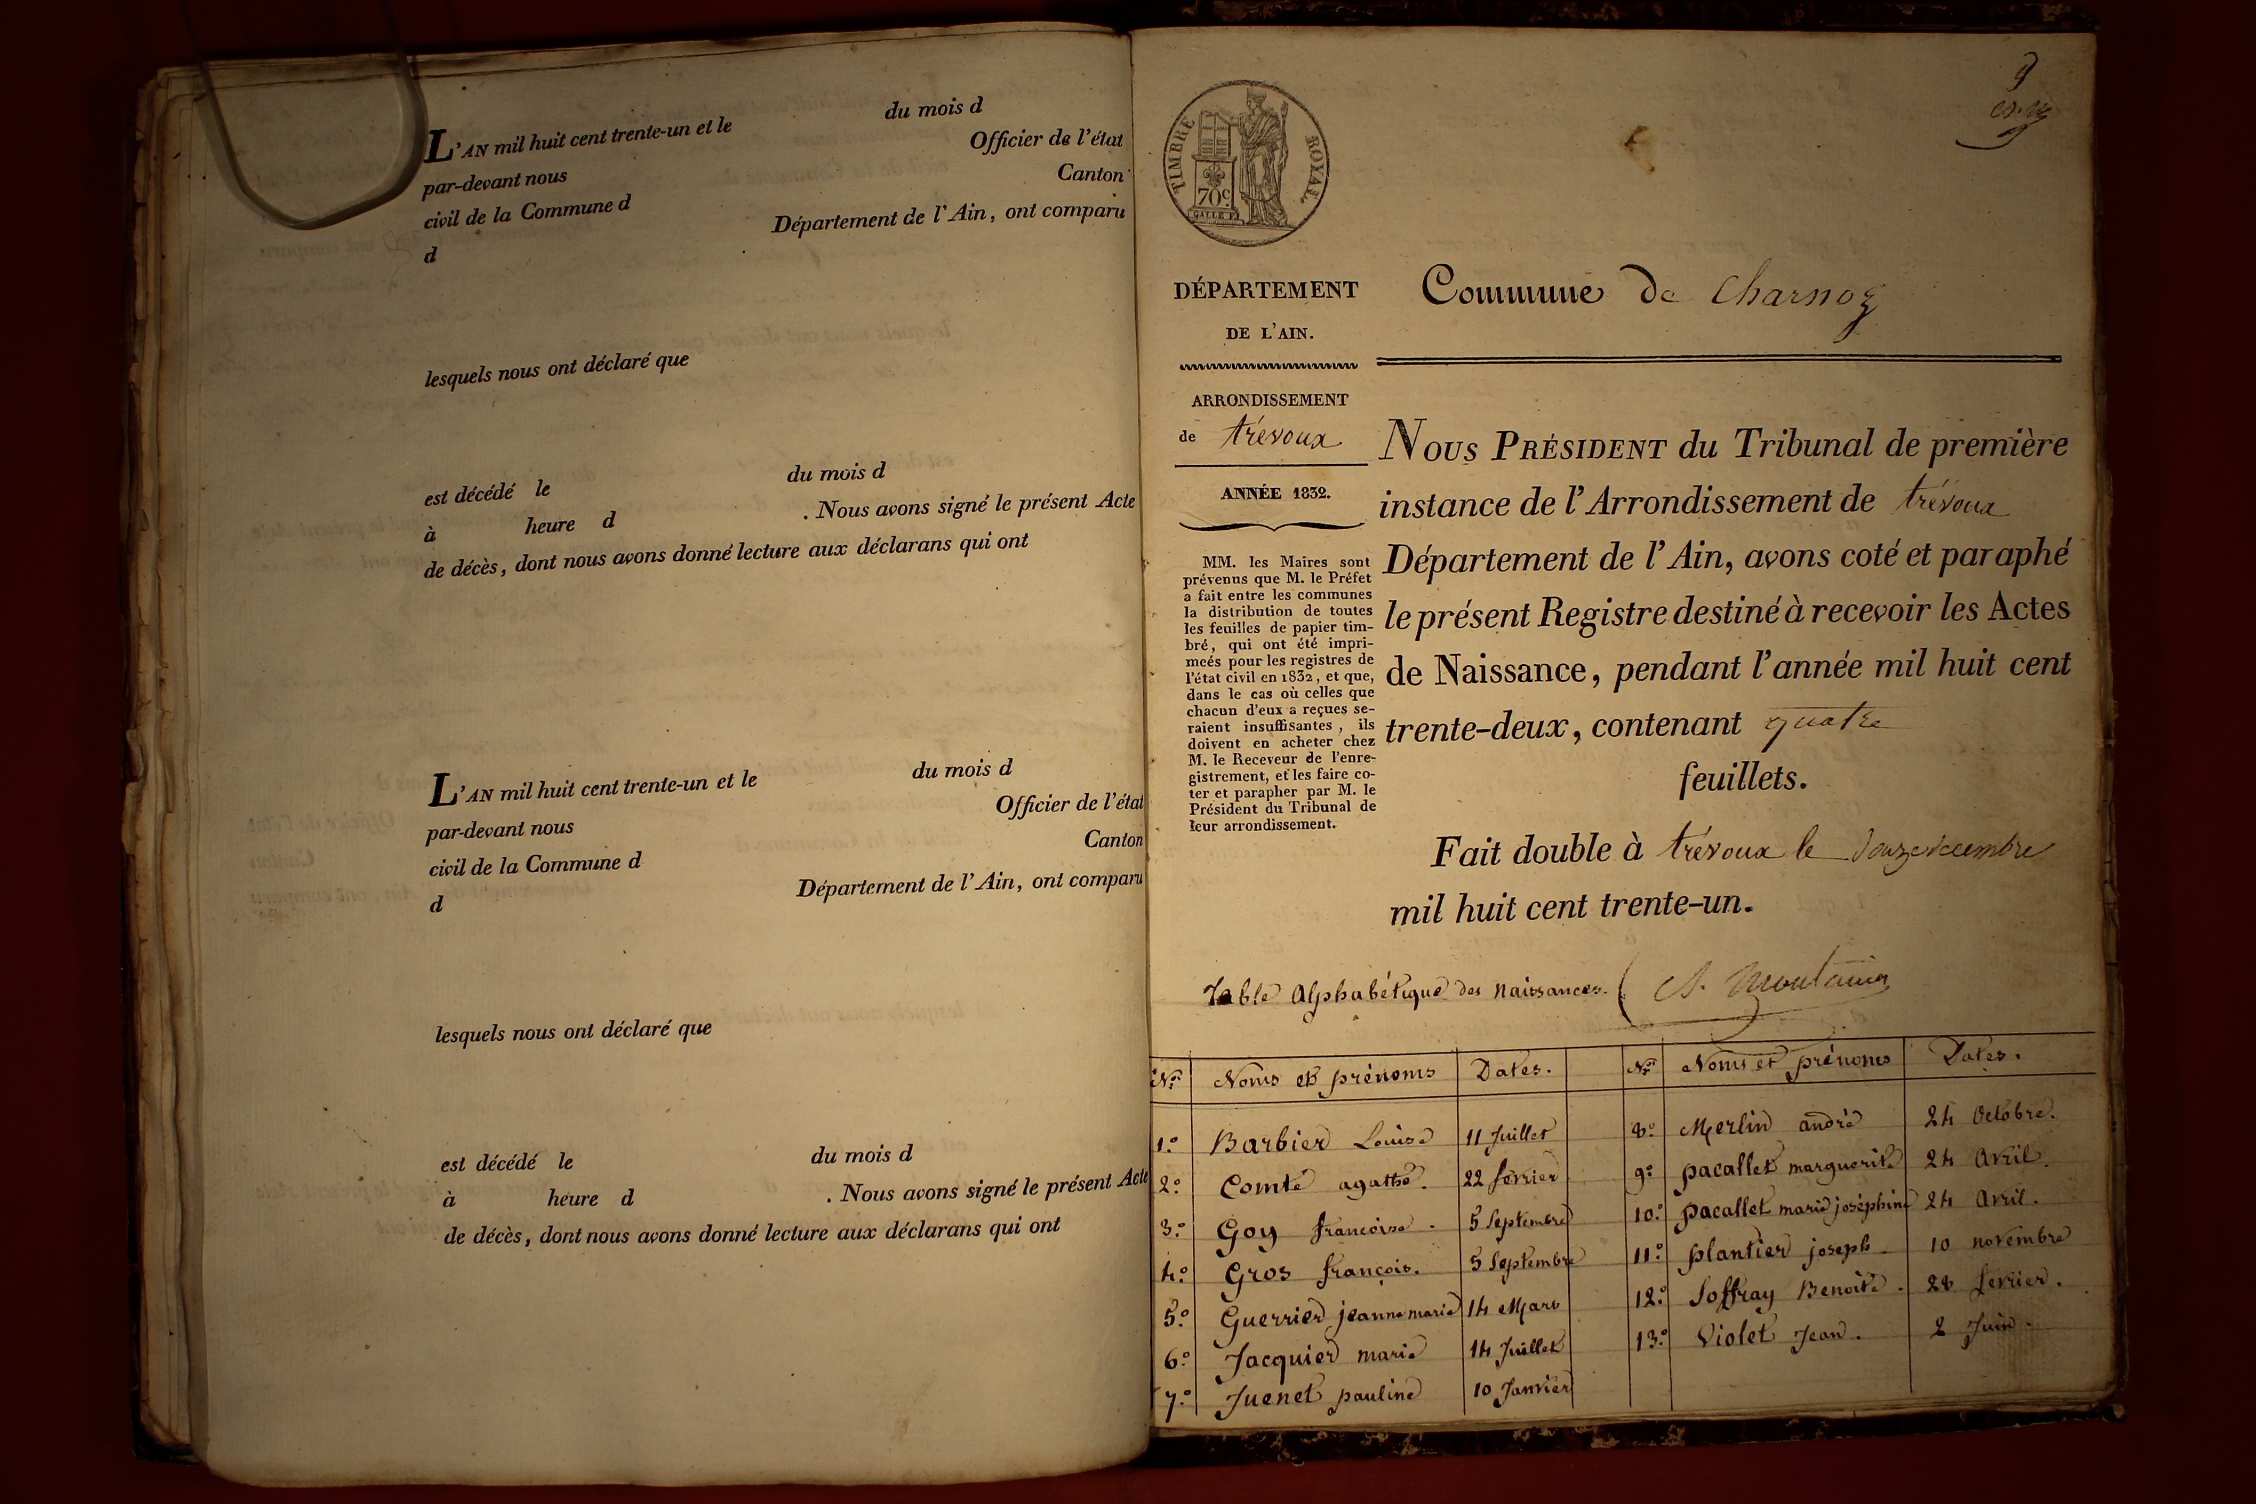 L'AN mil huit cent trente-un et le du mois d
par-devant nous Officier de l'état
civil de la Commune d Canton
d Département de l'Ain, ont comparu
lesquels nous ont déclaré que
est décédé le du mois d
à heure d . Nous avons signé le présent Acte
de décès, dont nous avons donné lecture aux déclarans qui ont
L'AN mil huit cent trente-un et le du mois d
par-devant nous Officier de l'état
civil de la Commune d Canton
d Département de l'Ain, ont comparu
lesquels nous ont déclaré que
est décédé le du mois d
à heure d . Nous avons signé le présent Acte
de décès, dont nous avons donné lecture aux déclarans qui ont
TIMBRE ROYAL
70c.
DÉPARTEMENT
DE L'AIN.
ARRONDISSEMENT
de trévoux
ANNÉE 1832.
MM. les Maires sont
prévenus que M. le Préfet
a fait entre les communes
la distribution de toutes
les feuilles de papier tim-
bré, qui ont été impri-
meés pour les registres de
l'état civil en 1832, et que,
dans le cas où celles que
chacun d'eux a reçues se-
raient insuffisantes, ils
doivent en acheter chez
M. le Receveur de l'enre-
gistrement, et les faire co-
ter et parapher par M. le
Président du Tribunal de
leur arrondissement.
Commune de Charnoz
NOUS PRÉSIDENT du Tribunal de première
instance de l'Arrondissement de trévoux
Département de l'Ain, avons coté et paraphé
le présent Registre destiné à recevoir les Actes
de Naissance, pendant l'année mil huit cent
trente-deux, contenant quatre
feuillets.
Fait double à trévoux le douze décembre
mil huit cent trente-un.
Table Alphabétique des Naissances.
Nos Noms et prénoms Dates. Nos Noms et prénoms Dates.
1.o Barbier Louise 11 Juillet 8.o Merlin andré 24 Octobre.
2.o Comte agathe. 22 fevrier 9.o pacallet marguerite 24 Avril.
3.o Goy francoise. 5 Septembre 10.o pacallet marie joséphine 24 Avril.
4.o Gros françois. 5 Septembre 11.o plantier joseph 10 novembre
5.o Guerrier jeanne marie 14 Mars 12.o Soffray Benoite. 28 fevrier.
6.o Jacquier marie 14 Juillet 13.o Violet Jean. 2 Juin.
7.o Juenet pauline 10 Janvier